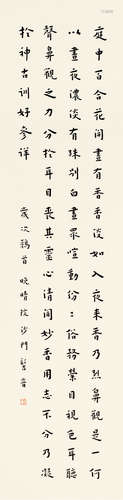 庭中百合花開晝有香香淡如入夜來香乃烈鼻觀是一何
以晝夜濃淡有殊別白晝眾喧動紛々俗務縈目視色耳聽
聲鼻觀之力分於耳目喪其靈心清聞妙香用志不分乃凝
於神古訓好參詳
歲次鶉首 晚晴院沙門髻音